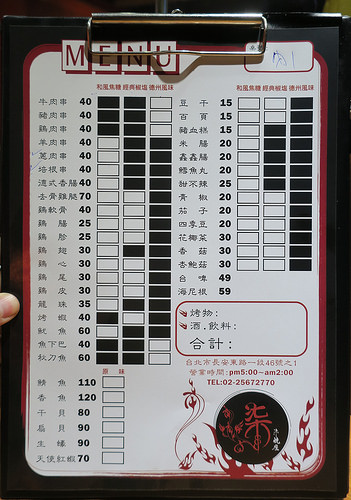 MENU
和風焦糖 經典椒塩 德州風味
牛肉串 40
豬肉串 40
鷄肉串 40
羊肉串 40
蔥肉串 40
培根串 40
德式香腸 40
去骨雞腿 70
鷄軟骨 40
鷄腸 25
鷄胗 25
鷄翅 30
鷄心 30
鷄尾 30
鷄皮 30
龍珠 35
烤蝦 40
魷魚 60
魚下巴 40
秋刀魚 60
原味
鯖魚 110
香魚 120
干貝 80
扇貝 90
生蠔 90
天使紅蝦 70
和風焦糖 經典椒塩 德州風味
豆干 15
百頁 15
豬血糕 15
米腸 20
鑫鑫腸 20
鱈魚丸 20
甜不辣 25
青椒 20
茄子 20
四季豆 20
花椰菜 30
香菇 30
杏鮑菇 30
台啤 49
海尼根 59
烤物:
酒.飲料:
合計:
台北市長安東路一段46號之1
營業時間:pm5:00~am2:00
TEL:02-25672770
柒
串燒屋